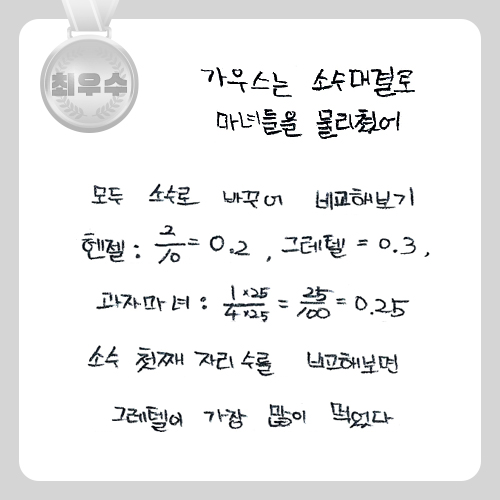 최우수
가우스는 소수대결로
마녀들을 물리쳤어
모두 소수로 바꾸어 비교해보기
헨젤 : 2/10 = 0.2 , 그레텔 = 0.3 ,
과자마녀 : 1×25/4×25 = 25/100 = 0.25
소수 첫째 자리 수를 비교해보면
그레텔이 가장 많이 먹었다